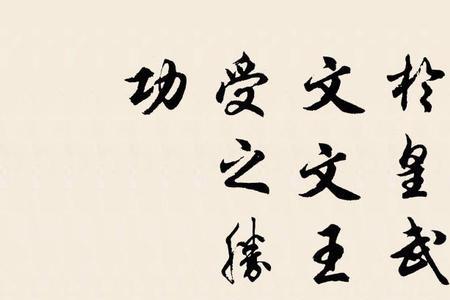 於皇武
文文王
受之勝
功